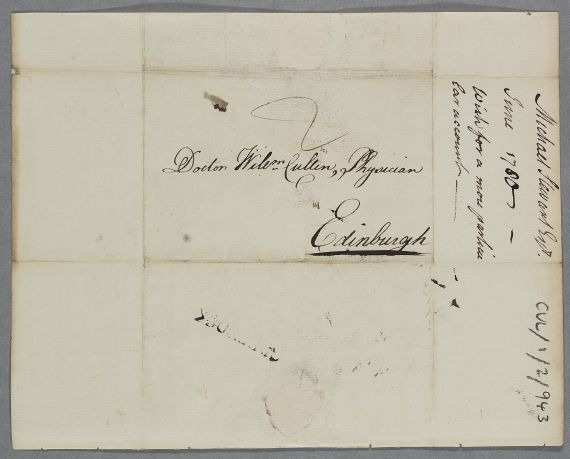 2
Doctor Willm. Cullen, Physician
Edinburgh
Michael Stewart Esqr.
June 1780 —
Wish for a more particu
lar account —
CUL/1/2/943